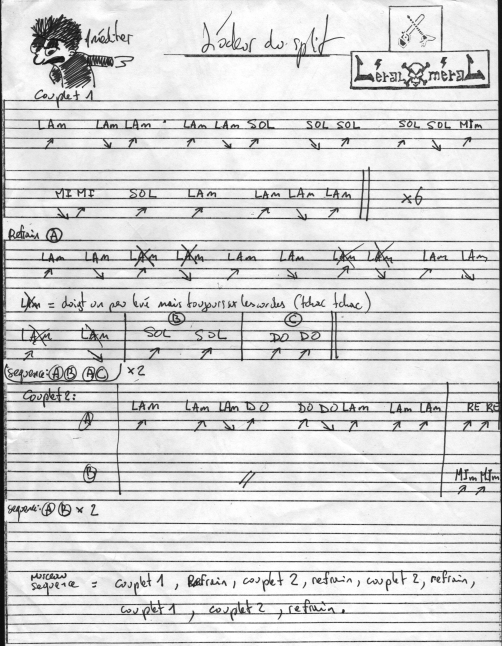 Prédter L'odeur du split
Léral méral
Couplet 1
LAm LAm LAm LAm LAm SOL SOL SOL SOL SOL MIm
MI MI SOL LAm LAm LAm LAm x6
Refrain A
LAm LAm LAm LAm LAm LAm LAm LAm LAm LAm
LAm = doigt un peu levé mais toujours sur les cordes (tchac tchac)
B C
LAm LAm SOL SOL DO DO
sequence: A B A C x2
Couplet 2:
A LAm LAm LAm DO DO DO LAm LAm LAm RE RE
B // MIm MIm
sequence: A B x 2
morceau
sequence = couplet 1, Refrain, couplet 2, refrain, couplet 2, refrain,
couplet 1, couplet 2, refrain.